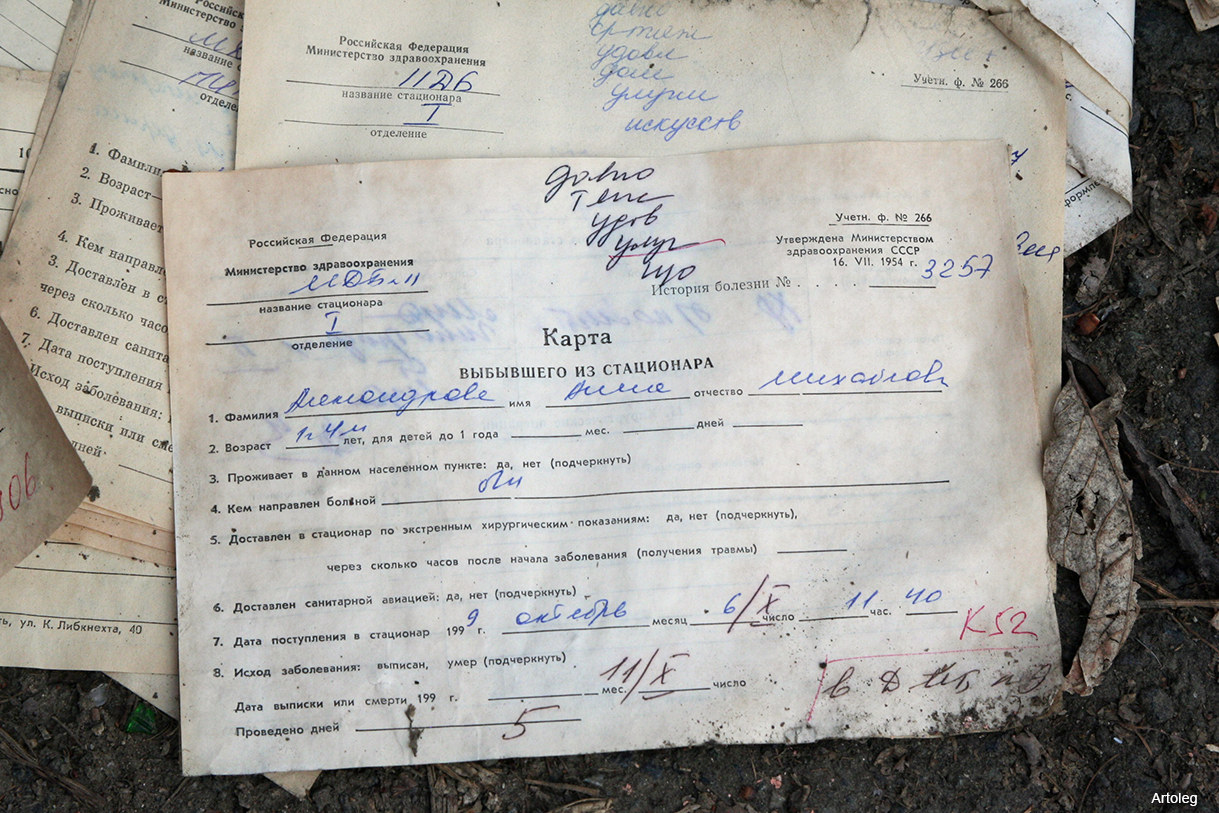 Российск
Министерство
название
отделе
1. Фамили
2. Возраст
3. Проживает
4. Кем направл
3. Доставлен в с
через сколько часо
6. Доставлен санита
7. Дата поступления
Исход заболевания:
выписки или сме
дней
ть, ул. К. Либкнехта, 40
Российская Федерация
Министерство здравоохранения
название стационара
I
отделение
удовл
искусств
Учетн. ф. № 266
Российская Федерация
Министерство здравоохранения
название стационара
I
отделение
давно
удов
Учетн. ф. № 266
Утверждена Министерством
здравоохранения СССР
16. VII. 1954 г.
История болезни № . . . . . 3257
Карта
ВЫБЫВШЕГО ИЗ СТАЦИОНАРА
1. Фамилия Александрова имя Анна отчество Михайловн
2. Возраст 1г 4м лет, для детей до 1 года мес. дней
3. Проживает в данном населенном пункте: да, нет (подчеркнуть)
4. Кем направлен больной
5. Доставлен в стационар по экстренным хирургическим показаниям: да, нет (подчеркнуть),
через сколько часов после начала заболевания (получения травмы)
6. Доставлен санитарной авиацией: да, нет (подчеркнуть)
7. Дата поступления в стационар 1999 г. октябрь месяц 6/X число 11 час. 40
K52
8. Исход заболевания: выписан, умер (подчеркнуть)
Дата выписки или смерти 199 г. мес. 11/X число
Проведено дней 5
Artoleg